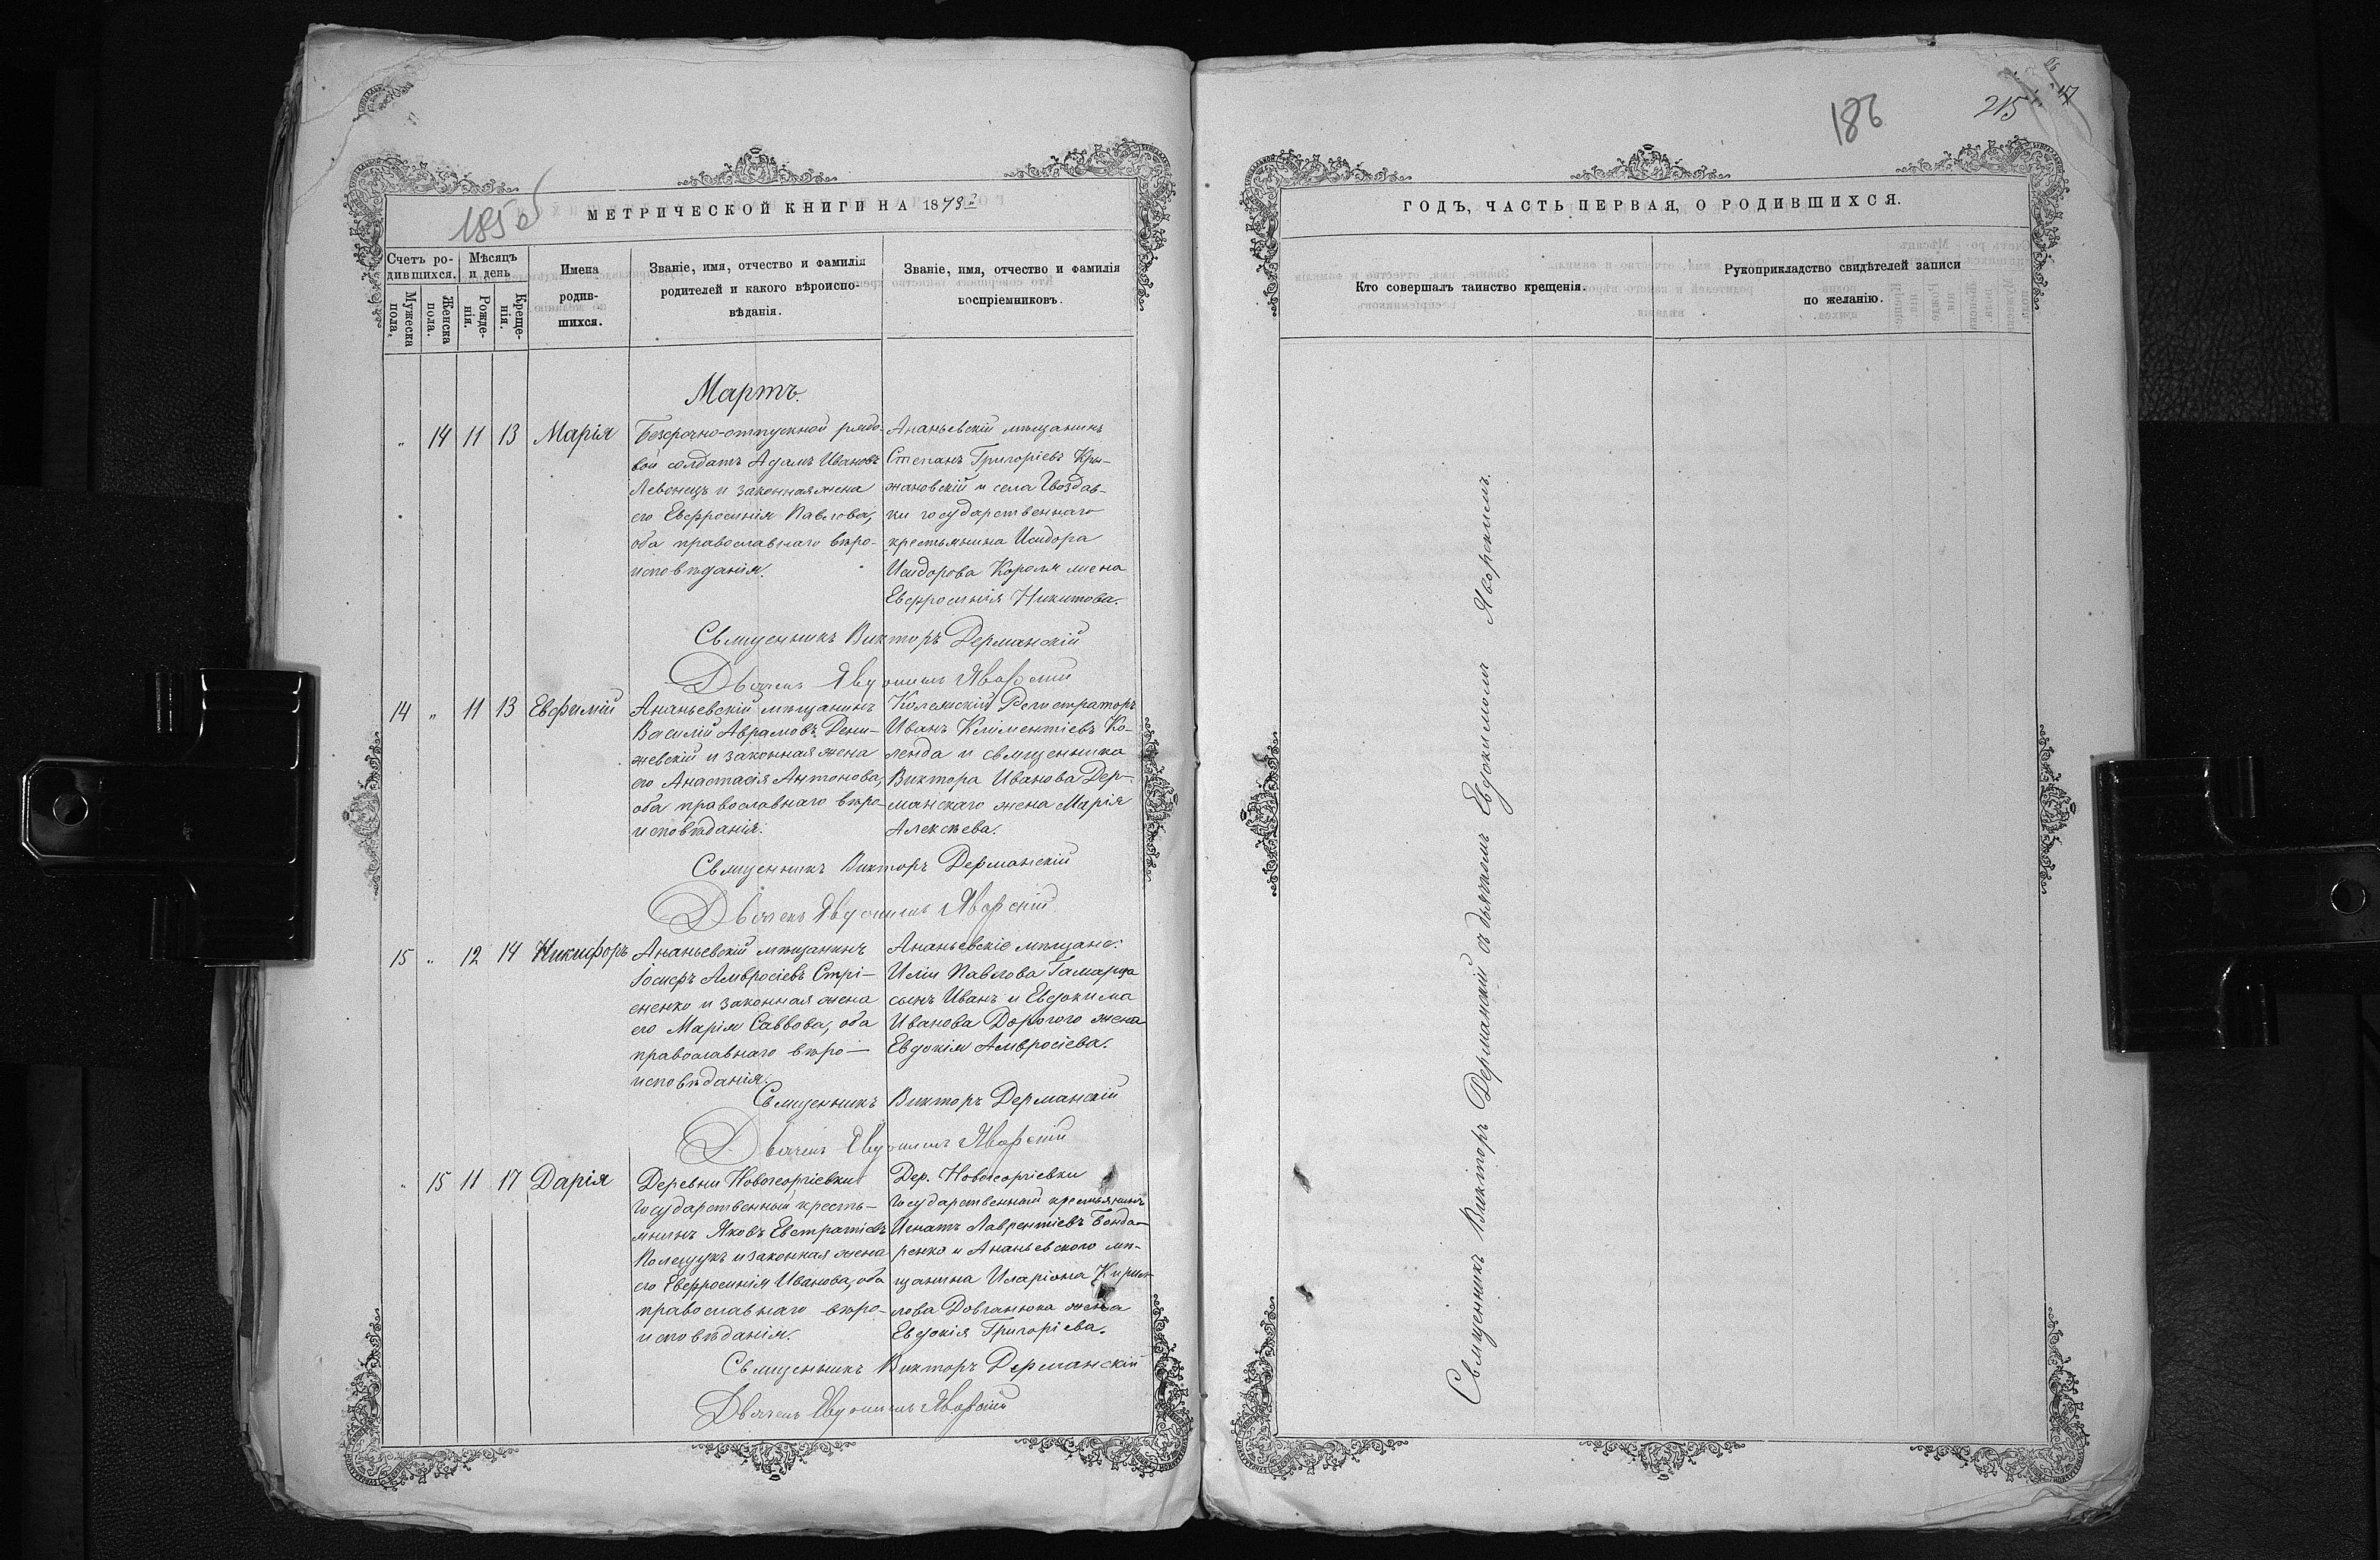 185 об
МЕТРИЧЕСКОЙ КНИГИ НА 1873й
Счетъ ро-
дившихся.
Мѣсяцъ
и день
Мужеска
пола.
Женска
пола.
Рожде-
нія.
Креще-
нія.
Имена
родив-
шихся.
Званіе, имя, отчество и фамилія
родителей и какого вѣроиспо-
вѣданія.
Званіе, имя, отчество и фамилія
воспріемниковъ.
Мартъ.
" 14 11 13 Марія
Безсрочно-отпускной рядо-
вой солдатъ Адамъ Ивановъ
Левонецъ и законная жена
его Евфросинія Павлова,
оба православнаго вѣро-
исповѣданія.
Ананьевскій мѣщанинъ
Степанъ Григоріевъ Кры-
жановскій и села Гвоздав-
ки государственнаго
крестьянина Исидора
Исидорова Короля жена
Евфросинія Никитова.
Священникъ Викторъ Дерманскій
Дьячекъ Евдокимъ Яворскій
14 " 11 13 Евфимій
Ананьевскій мѣщанинъ
Василій Аврамовъ Дени-
жевскій и законная жена
его Анастасія Антонова,
оба православнаго вѣро-
исповѣданія.
Колежскій Регистраторъ
Иванъ Климентіевъ Ко-
ленда и священника
Виктора Иванова Дер-
манскаго жена Марія
Алексѣева.
Священникъ Викторъ Дерманскій
Дьячекъ Евдокимъ Яворскій
15 " 12 14 Никифоръ
Ананьевскій мѣщанинъ
Іосифъ Амвросіевъ Стрі-
женко и законная жена
его Марія Саввова, оба
православнаго вѣро-
исповѣданія.
Ананьевскіе мѣщане:
Иліи Павлова Гамарца
сынъ Иванъ и Евдокима
Иванова Дорогого жена
Евдокія Амвросіева.
Священникъ Викторъ Дерманскій
Дьячекъ Евдокимъ Яворскій
" 15 11 17 Дарія
Деревни Новогеоргіевки
государственный кресть-
янинъ Яковъ Евстратіевъ
Полещукъ и законная жена
его Евфросинія Иванова, оба
православнаго вѣро-
исповѣданія.
Дер. Новогеоргіевки
государственный крестьянинъ
Игнатъ Лаврентіевъ Бонда-
ренко и Ананьевского мѣ-
щанина Иларіона Кирил-
лова Довганюка жена
Евдокія Григоріева.
Священникъ Викторъ Дерманскій
Дьячекъ Евдокимъ Яворскій
186
215
ГОДЪ, ЧАСТЬ ПЕРВАЯ, О РОДИВШИХСЯ.
Кто совершалъ таинство крещенія.
Рукоприкладство свидѣтелей записи
по желанію.
Священникъ Викторъ Дерманскій съ дьячкомъ Евдокимомъ Яворскимъ.